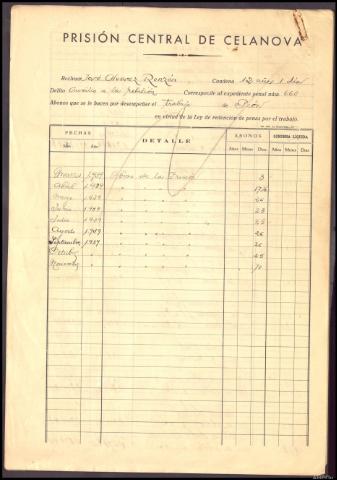 PRISIÓN CENTRAL DE CELANOVA
Recluso José Alvarez Condena 12 años 1 día
Delito Auxilio a la rebelión Corresponde al expediente penal núm. 660
Abonos que se le hacen por desempeñar el trabajo de
en virtud de la Ley de redención de penas por el trabajo.
FECHAS DETALLE ABONOS CONDENA LIQUIDA
Mes Año Años Meses Días Años Meses Días
Marzo 1939 Obras de las 3
Abril 1939 " " " 17
Mayo 1939 " " " 24
Junio 1939 " " " 23
Julio 1939 " " " 25
Agosto 1939 " " " 26
Septiembre 1939 " " " 26
Octubre " " " 25
Noviembre " " " 10